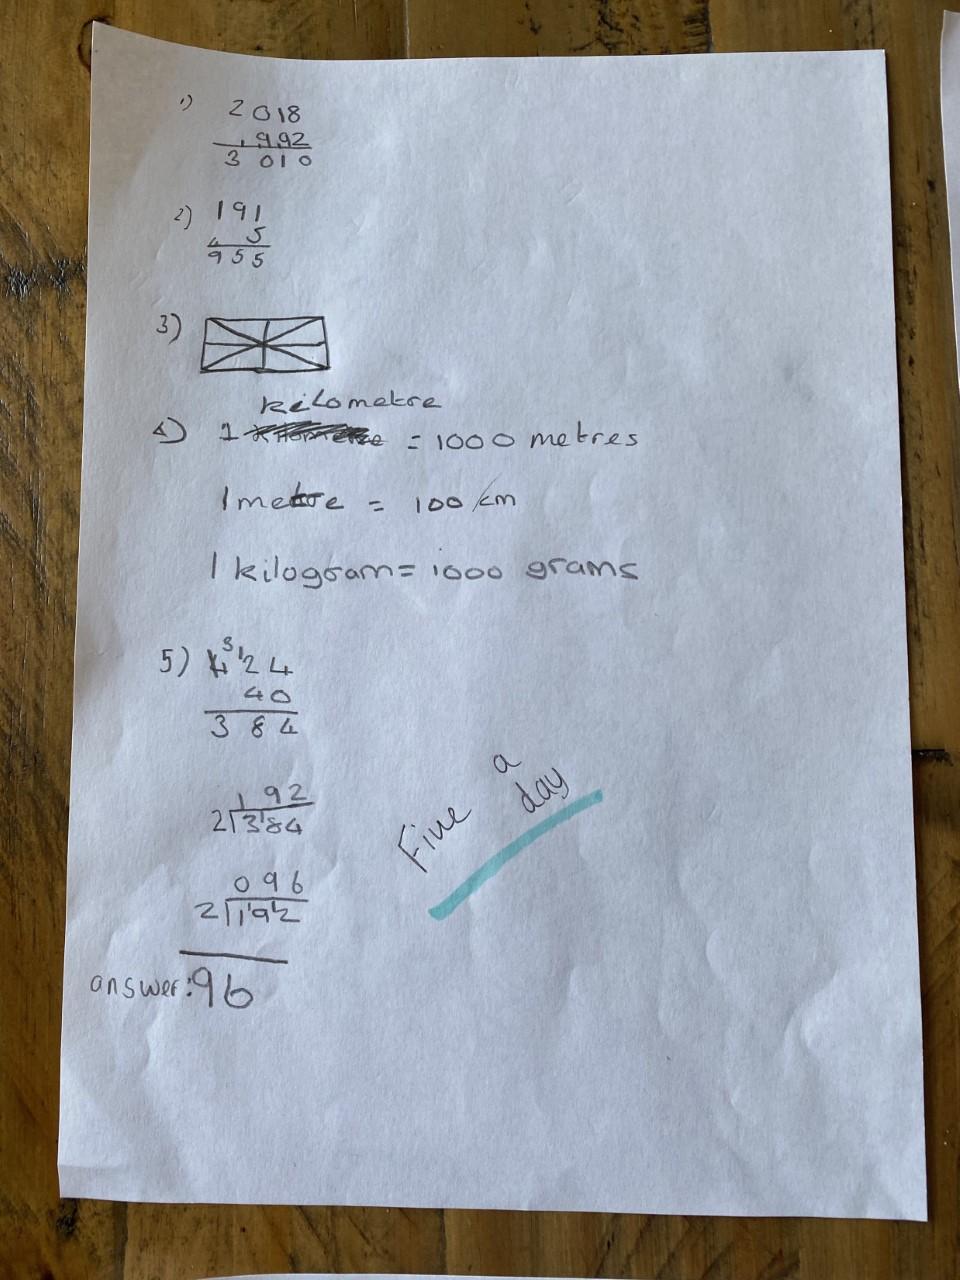 1) 2018
1992
3010
2) 191
4 5
955
3)
kilometre
4) 1 = 1000 metres
1 metre = 100 cm
1 kilogram = 1000 grams
5) 4 3 1 2 4
40
384
192
2 3 1 8 4
096
2 1 1 9 1 2
answer: 96
Five a day